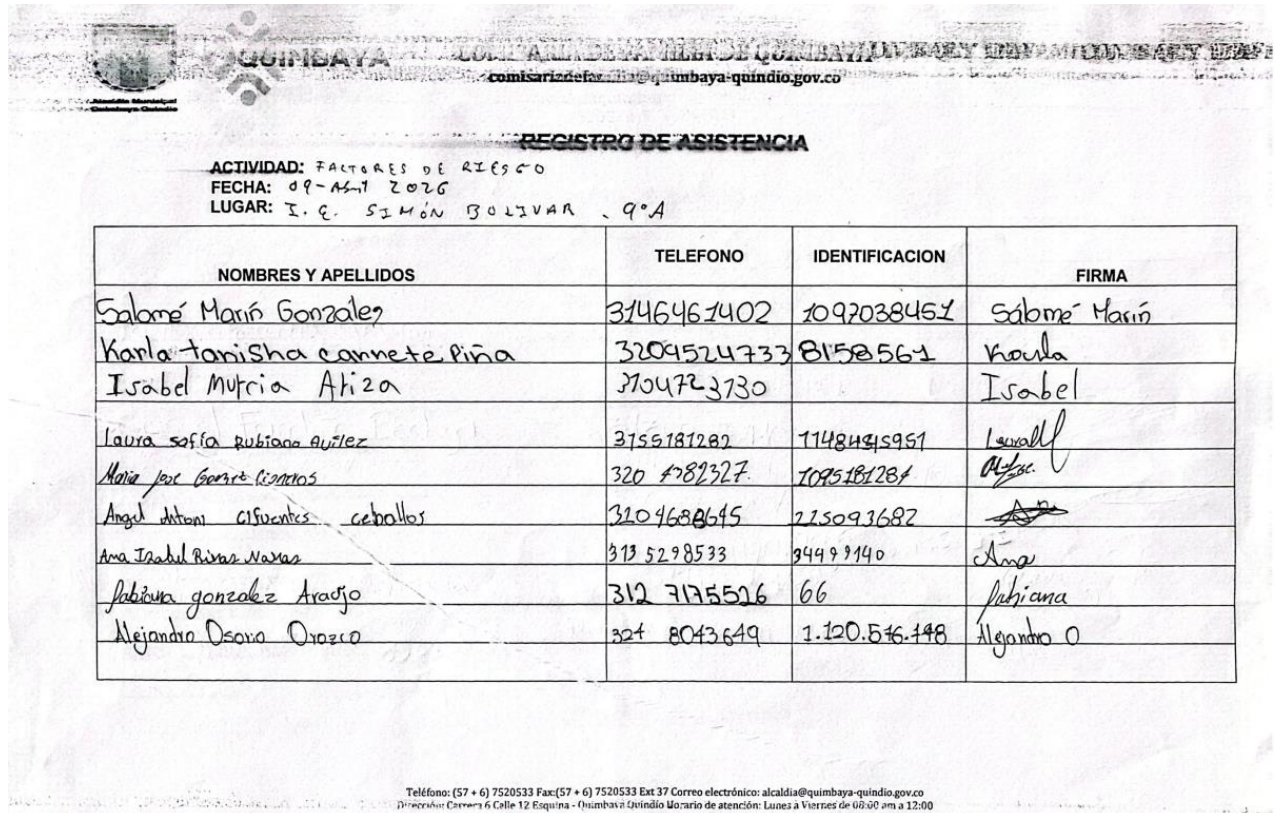 QUIMBAYA
COMISARIA DE FAMILIA DE QUIMBAYA
comisariadefamilia@quimbaya-quindio.gov.co
Alcaldía Municipal
Quimbaya Quindío
REGISTRO DE ASISTENCIA
ACTIVIDAD: FACTORES DE RIESGO
FECHA: 09-Abril 2026
LUGAR: I. E. SIMÓN BOLIVAR . 9°A
NOMBRES Y APELLIDOS TELEFONO IDENTIFICACION FIRMA
Salomé Marín Gonzalez 3146461402 1097038451 Sálomé Marín
Karla tanisha cannete Piña 3209524733 8158561 Karla
Isabel Murcia Ariza 3104723730 Isabel
Laura sofía Rubiano Avilez 3155181282 Laura
Maria jose Gomez Cisneros 320 4782327 1095181284
Angel Antoni cifuentes ceballos 3104688645 225093682
Ana Isabel Rivas Navas 313 5298533 34499140 Ana
fabiana gonzalez Araujo 312 7175526 66 fabiana
Alejandro Osorio Orozco 324 8043649 1.120.576.448 Alejandro O
Teléfono: (57 + 6) 7520533 Fax:(57 + 6) 7520533 Ext 37 Correo electrónico: alcaldia@quimbaya-quindio.gov.co
Dirección: Carrera 6 Calle 12 Esquina - Quimbaya Quindío Horario de atención: Lunes a Viernes de 08:00 am a 12:00